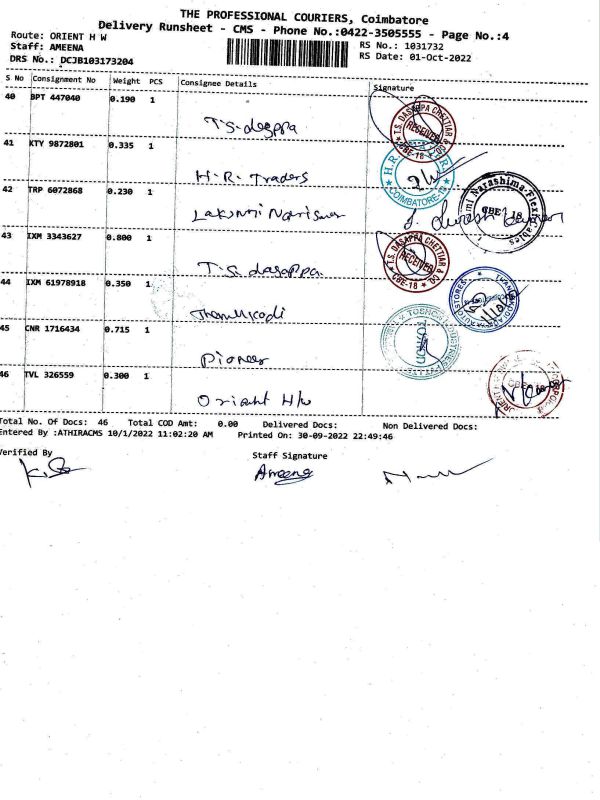 THE PROFESSIONAL COURIERS, Coimbatore
Delivery Runsheet - CMS - Phone No.:0422-3505555 - Page No.:4
Route: ORIENT H W
RS No.: 1031732
Staff: AMEENA
RS Date: 01-Oct-2022
DRS No.: DCJB103173204
S No Consignment No Weight PCS Consignee Details Signature
40 BPT 447040 0.190 1
T.S. dasappa
T.S. DASAPPA CHETTIAR & CO RECEIVED CBE-18
41 KTY 9872801 0.335 1
H.R. Traders
H.R. COIMBATORE-18
42 TRP 6072868 0.230 1
Lakshmi
Narashima CBE 18
43 IXM 3343627 0.800 1
T.S. dasappa
T.S. DASAPPA CHETTIAR & CO RECEIVED CBE-18
44 IXM 61978918 0.350 1
AUTOSTORES
45 CNR 1716434 0.715 1
Pioneer
46 TVL 326559 0.300 1
Orient H/w
CBE 18
Total No. Of Docs: 46 Total COD Amt: 0.00 Delivered Docs: Non Delivered Docs:
Entered By :ATHIRACMS 10/1/2022 11:02:20 AM Printed On: 30-09-2022 22:49:46
Verified By Staff Signature
Ameena